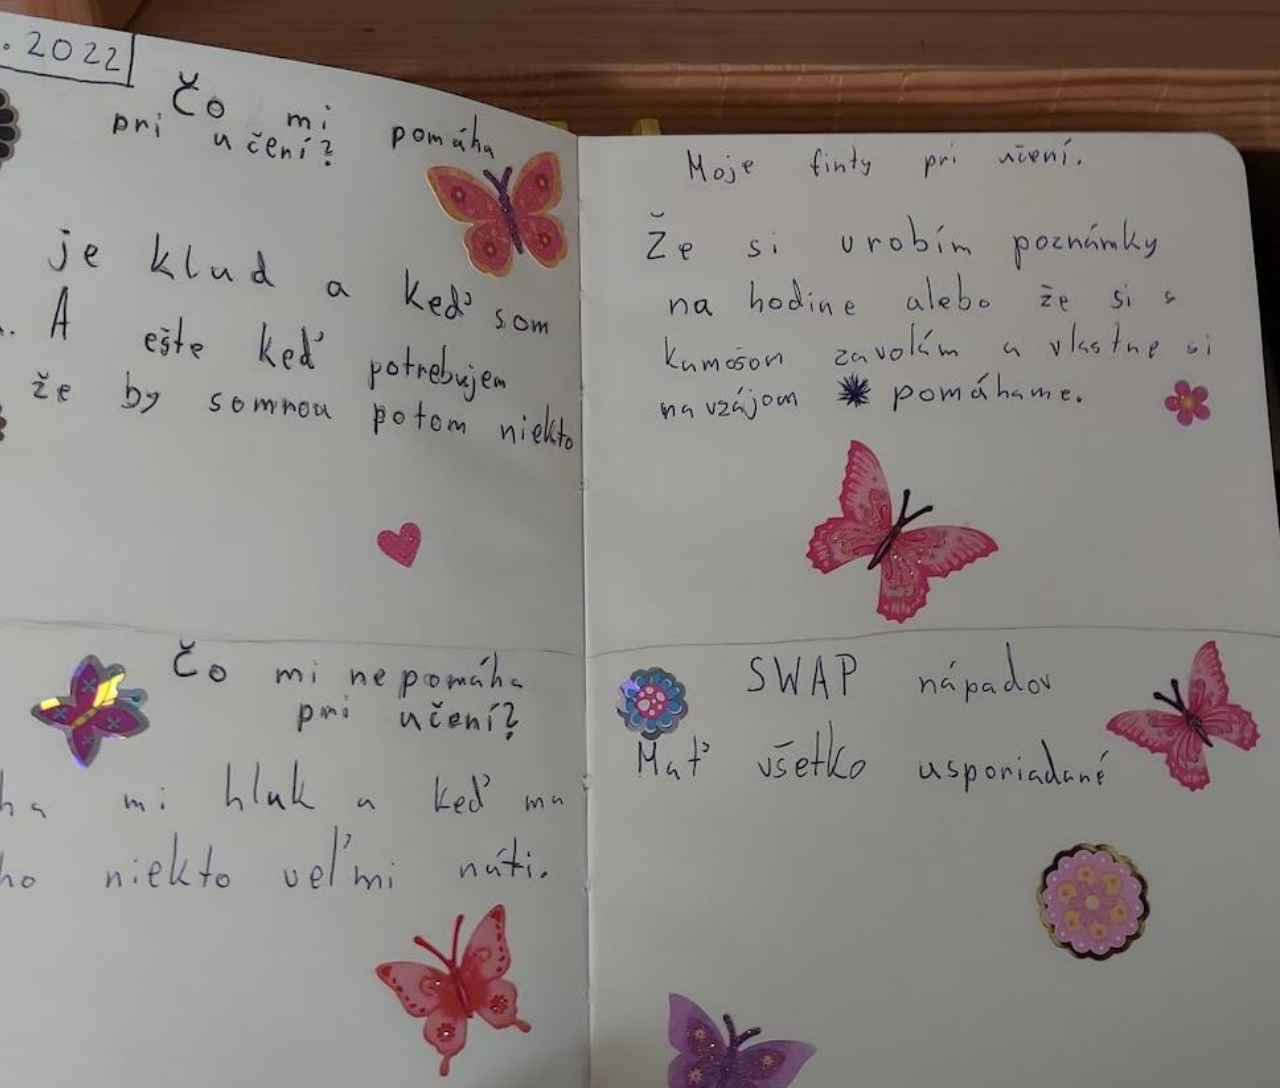 . 2022
Čo mi pomáha
pri učení?
je klud a keď som
. A ešte keď potrebujem
že by somnou potom niekto
Čo mi nepomáha
pri učení?
ha mi hluk a keď ma
ho niekto veľmi núti.
Moje finty pri učení.
Že si urobím poznámky
na hodine alebo že si s
kamošon zavolám a vlastne si
navzájom pomáhame.
SWAP nápadov
Mať všetko usporiadané